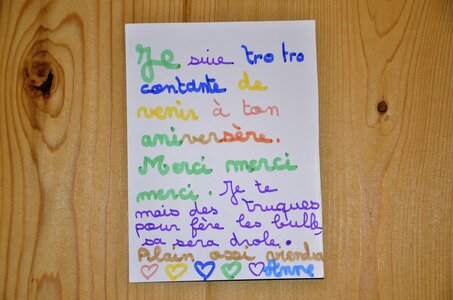 Je suie tro tro
contante de
venir à ton
aniversère.
Merci merci
merci. Je te
mais des truques
pour fère les bulle,
sa sera drole.
Alain ossi viendra
Anne